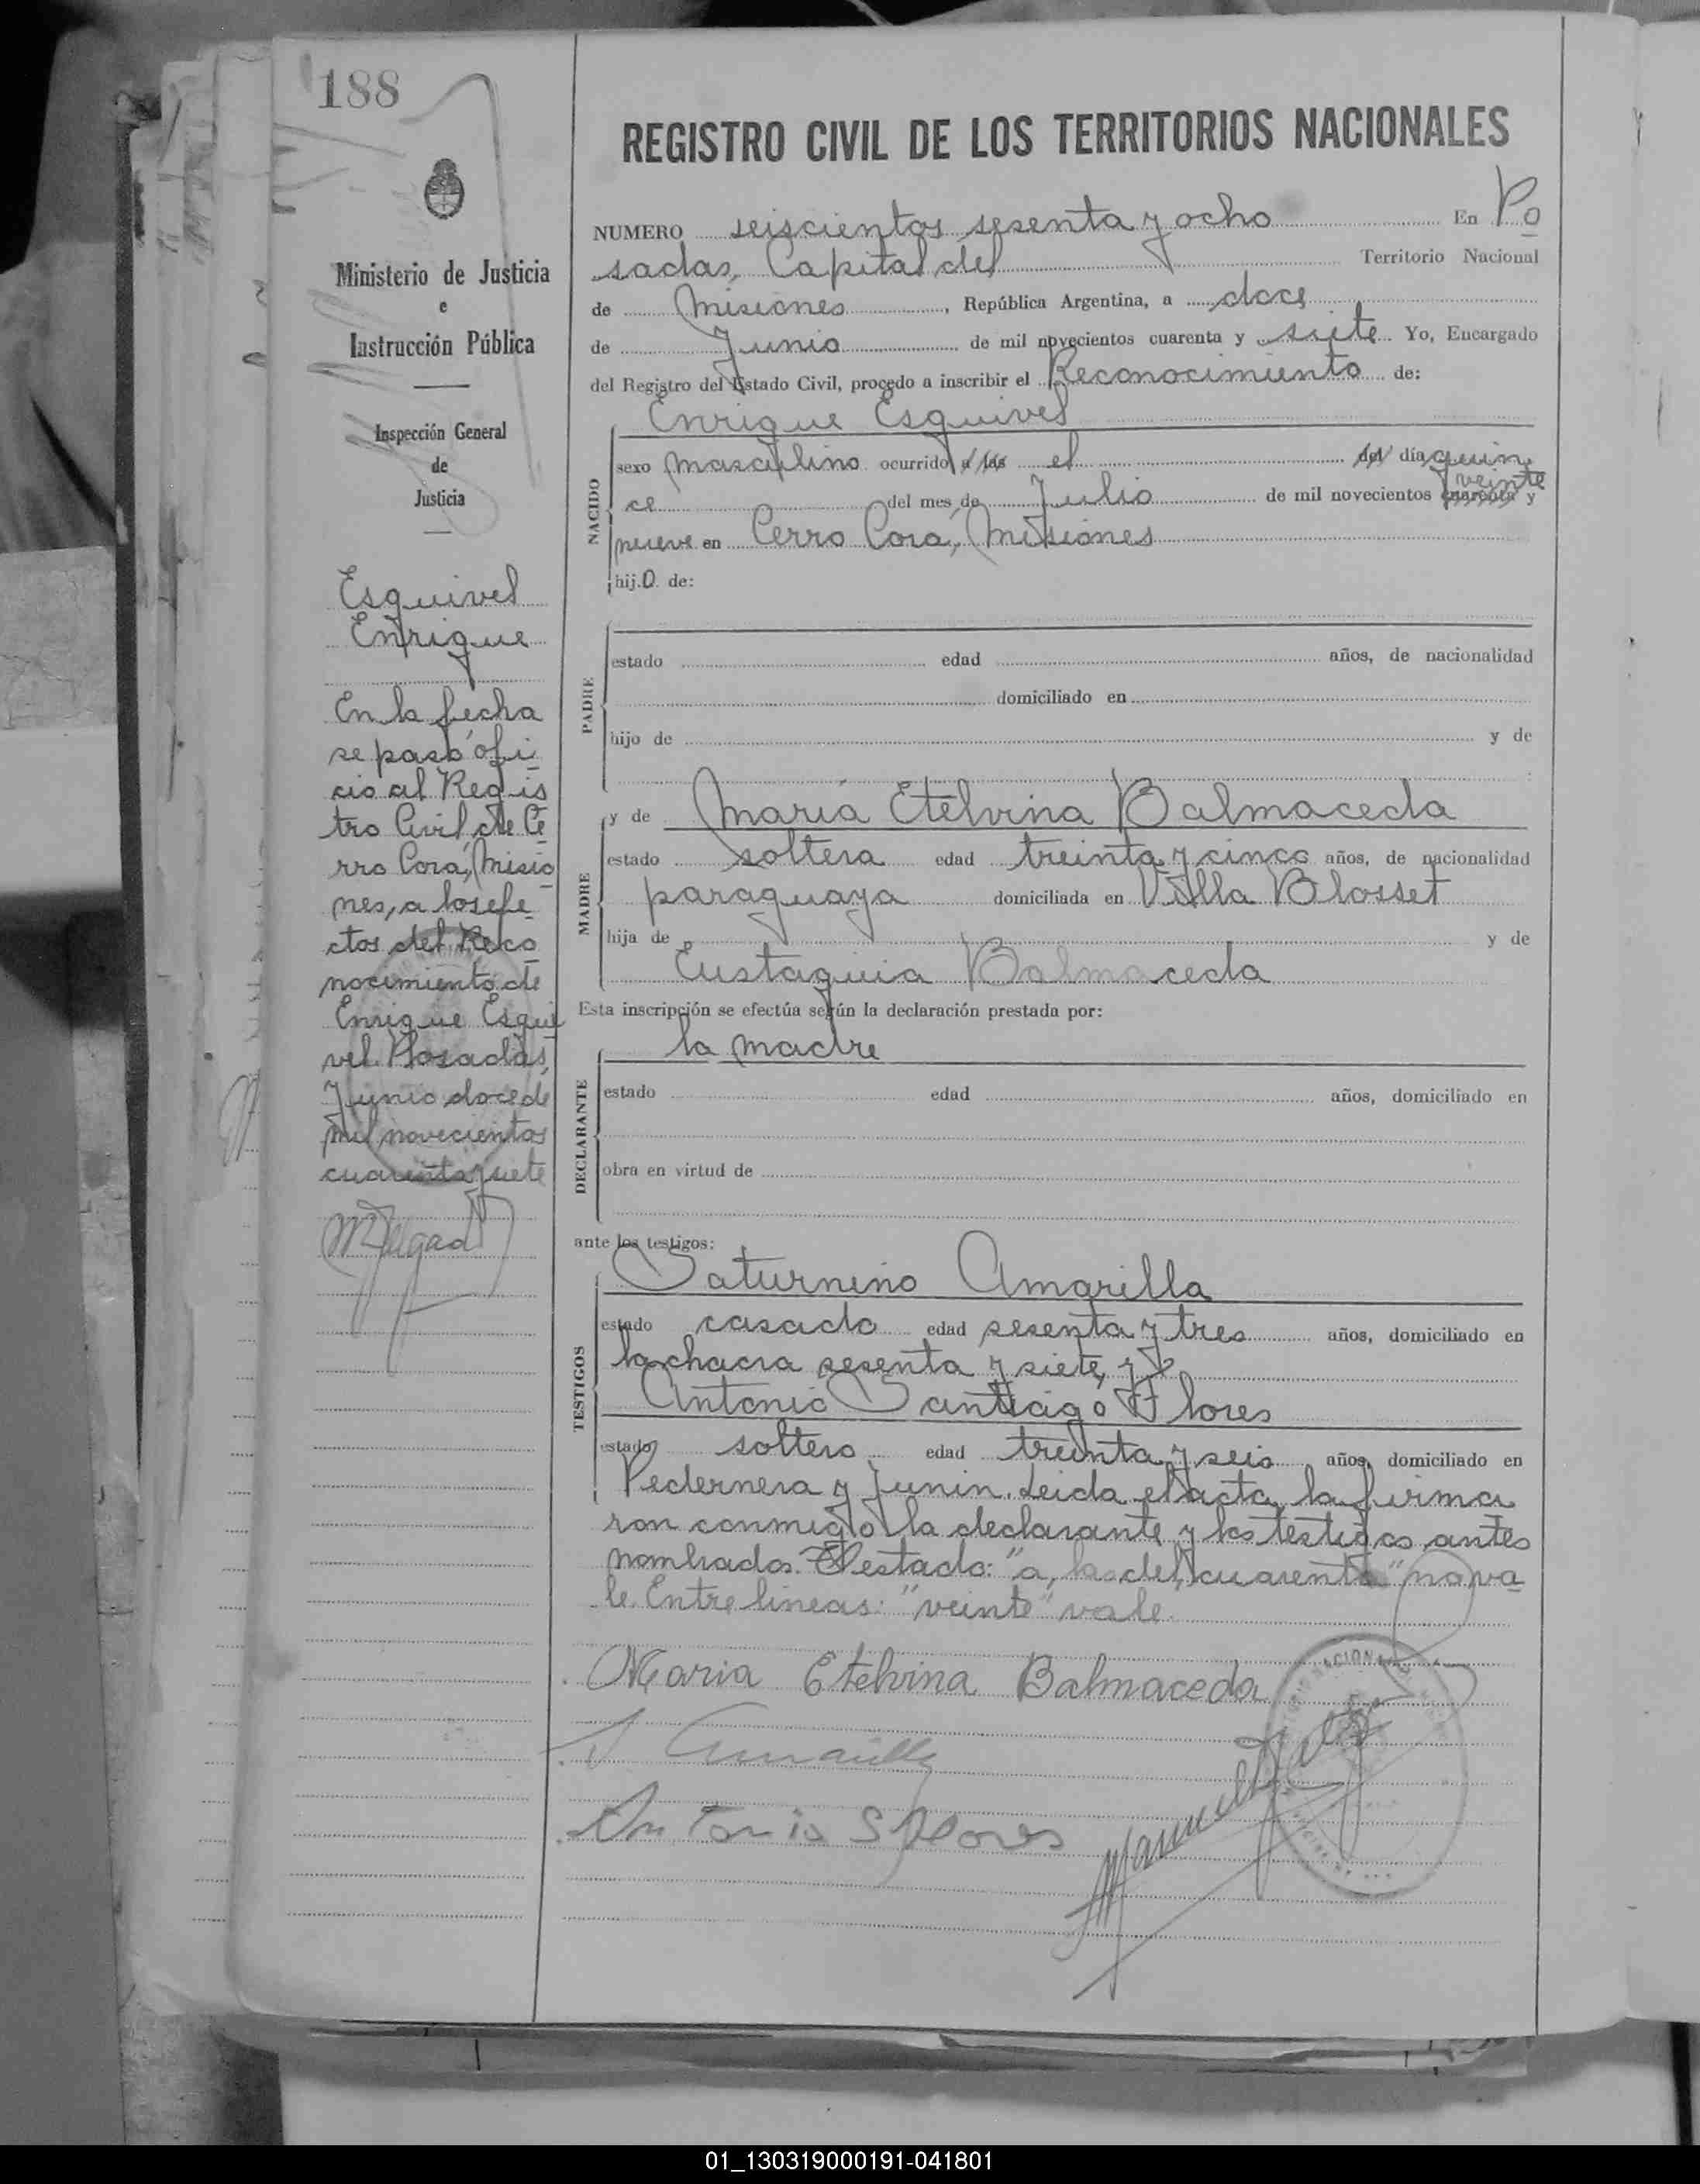 188
REGISTRO CIVIL DE LOS TERRITORIOS NACIONALES
Ministerio de Justicia
e
Instrucción Pública
Inspección General
de
Justicia
Esquivel
Enrique
En la fecha
se pasó ofi
cio al Regis
tro Civil de Ce
rro Corá, Misio
nes, a los efe
ctos del Reco
nocimiento de
Enrique Esqui
vel. Posadas,
Junio doce de
mil novecientos
cuarenta y siete
NUMERO seiscientos sesenta y ocho En Po
sadas, Capital del Territorio Nacional
de Misiones, República Argentina, a doce
de Junio de mil novecientos cuarenta y siete Yo, Encargado
del Registro del Estado Civil, procedo a inscribir el Reconocimiento de:
Enrique Esquivel
NACIDO
sexo masculino ocurrido a las el del día quin
ce del mes de Julio de mil novecientos cuarenta veinte y
nueve en Cerro Corá, Misiones
hijo de:
PADRE
estado edad años, de nacionalidad
domiciliado en
hijo de y de
MADRE
y de María Etelvina Balmaceda
estado soltera edad treinta y cinco años, de nacionalidad
paraguaya domiciliada en Villa Blosset
hija de y de
Eustaquia Balmaceda
Esta inscripción se efectúa según la declaración prestada por:
DECLARANTE
la madre
estado edad años, domiciliado en
obra en virtud de
ante los testigos:
TESTIGOS
Saturnino Amarilla
estado casado edad sesenta y tres años, domiciliado en
la chacra sesenta y siete, y
Antonio Santiago Flores
estado soltero edad treinta y seis años, domiciliado en
Pedernera y Junin. Leida el acta, la firma
ron conmigo la declarante y los testigos antes
nombrados. Testado: "a, las, del, cuarenta" no va
le. Entre lineas: "veinte" vale.
Maria Etelvina Balmaceda
S Amarilla
Antonio S Flores
01_130319000191-041801